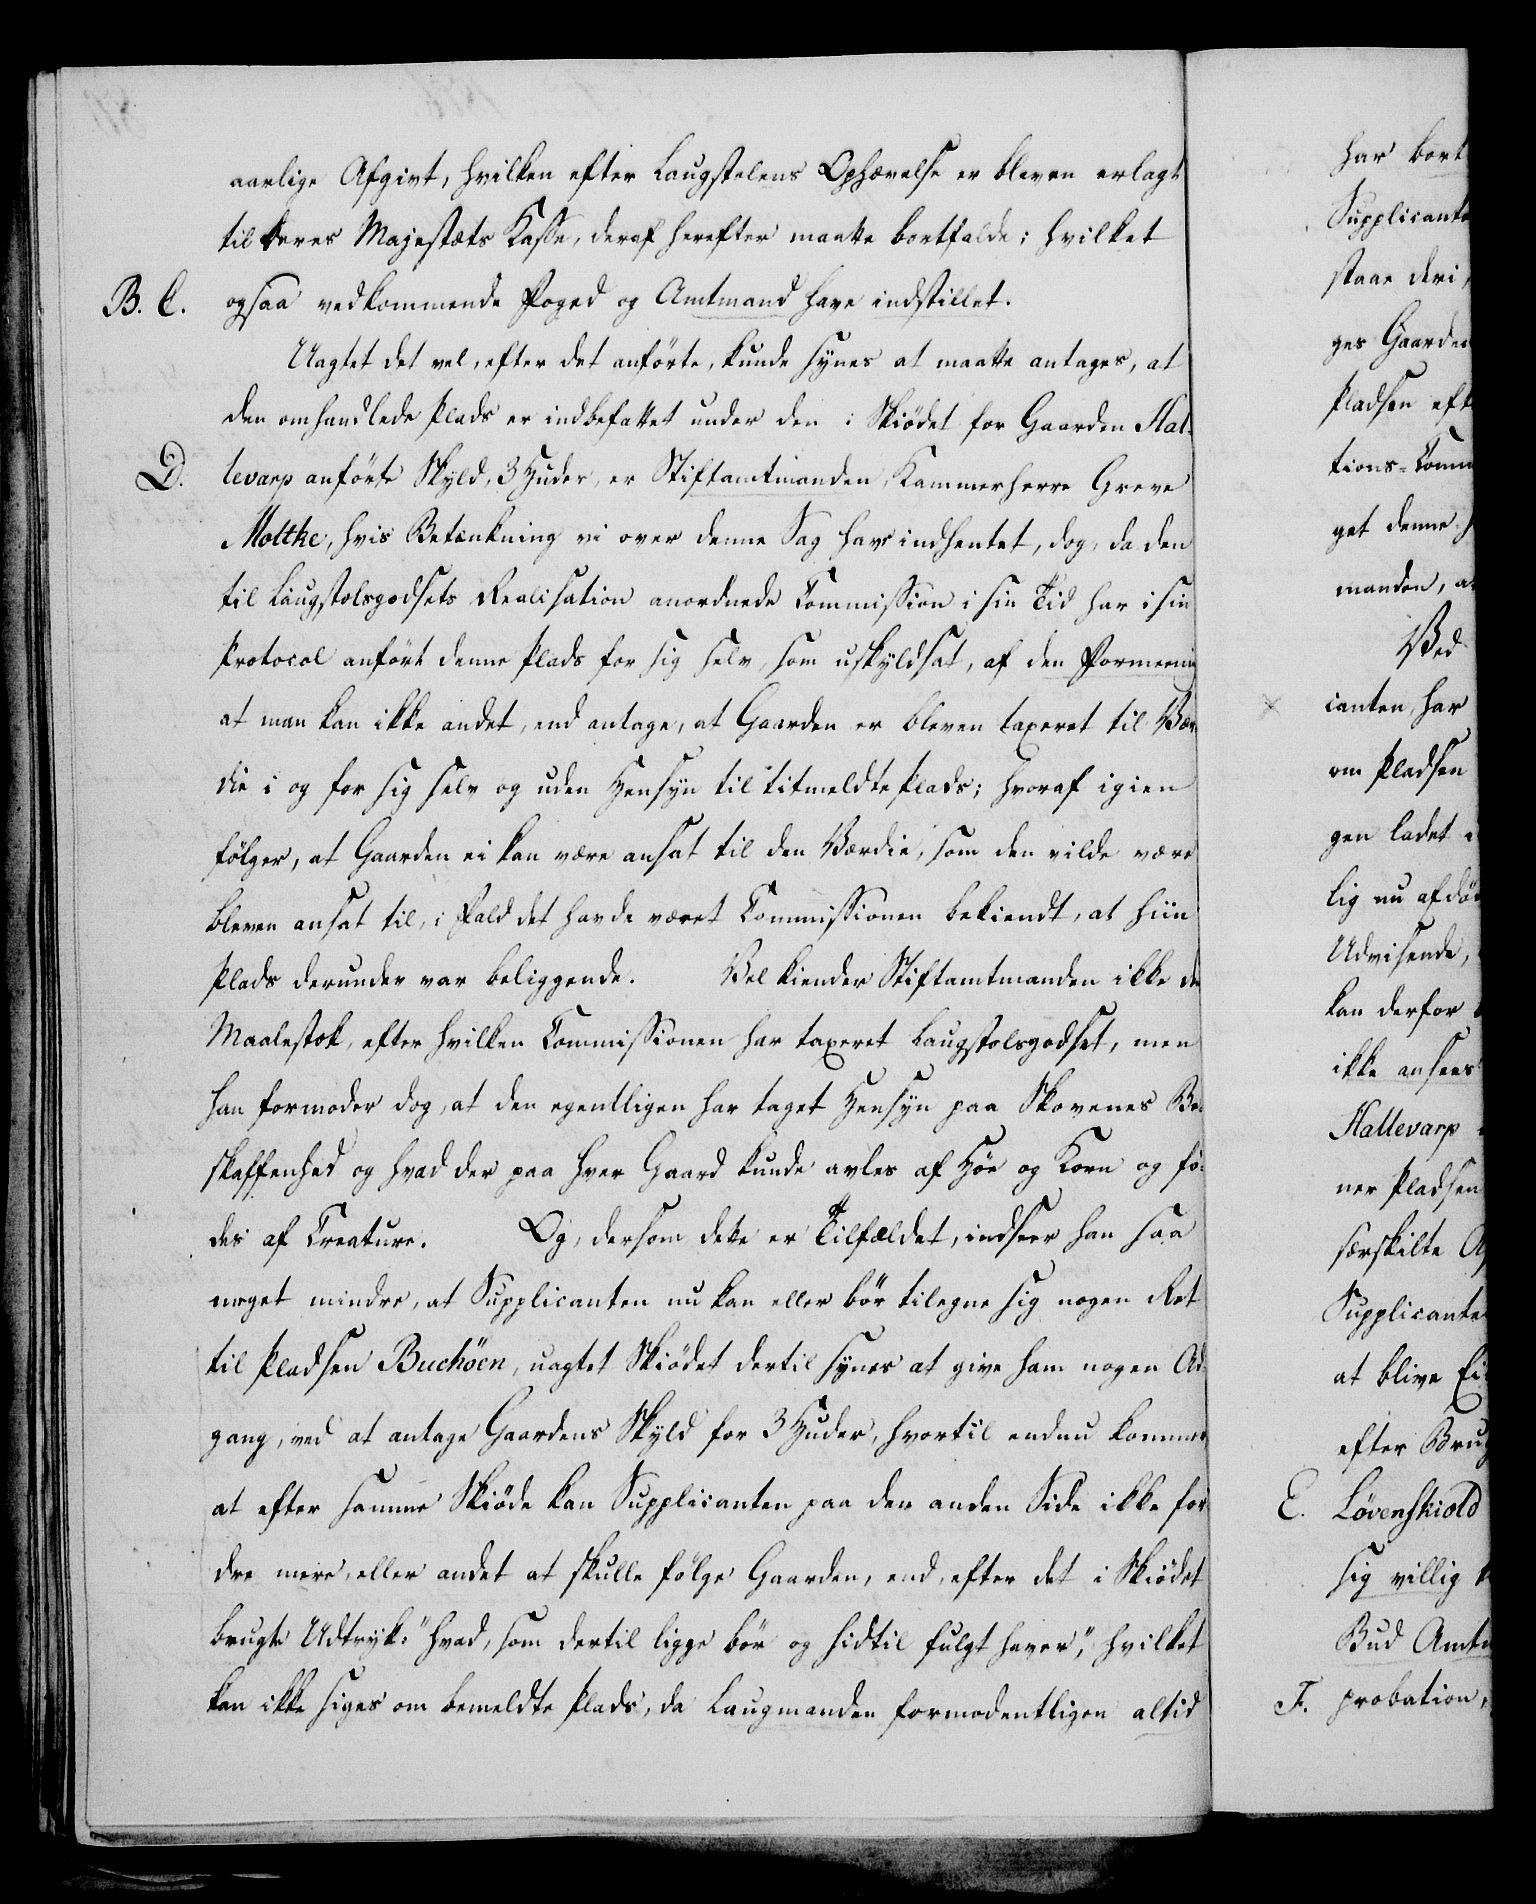 aarlige Afgivt, hvilken efter Laugstolens Ophævelse er bleven erlagt
til Deres Majestæts Kasse, deraf herefter maatte bortfalde; hvilket
B. C. ogsaa vedkommende Foged og Amtmand have indstillet.
Uagtet det vel, efter det anförte, kunde synes at maatte antages, at
den omhandlede Plads er indbefattet under den i Skiödet for Gaarden Hal-
D. levarp anförte Skyld, 3 Huder, er Stiftamtmanden, Kammerherre Greve
Moltke, hvis Betænkning vi over denne Sag have indhentet, dog, da den
til Laugstolsgodsets Realisation anordnede Commission i sin Tid har i sin
Protocol anfört denne Plads for sig selv, som uskyldsat, af den Formening
at man kan ikke andet, end antage, at Gaarden er bleven taxeret til Vær-
die i og for sig selv og uden Hensyn til titmeldte Plads; hvoraf igien
fölger, at Gaarden ei kan være ansat til den Værdie, som den vilde være
bleven ansat til, i Fald det havde været Commissionen bekiendt, at hiin
Plads derunder var beliggende. Vel kiender Stiftamtmanden ikke den
Maalestok, efter hvilken Commissionen har taxeret Laugstolsgodset, men
han formoder dog, at den egentligen har taget Hensyn paa Skovenes Be-
skaffenhed og hvad der paa hver Gaard kunde avles af Höe og Korn og fö-
des af Creature. Og, dersom dette er Tilfældet, indseer han saa
meget mindre, at Supplicanten nu kan eller bör tilegne sig nogen Ret
til Pladsen Buchöen, uagtet Skiödet dertil synes at give ham nogen Ad-
gang, ved at antage Gaardens Skyld for 3 Huder, hvortil endnu kommer,
at efter samme Skiöde kan Supplicanten paa den anden Side ikke for-
dre mere, eller andet at skulle fölge Gaarden, end, efter det i Skiödet
brugte Udtryk: "hvad, som dertil ligge bör og hidtil fulgt haver", hvilket
kan ikke siges om bemeldte Plads, da Laugmanden formodentligen altid
har bort
Supplicante
staae deri,
ges Gaarden
Pladsen eft
tions-Comm
get denne
manden, a
Ved
canten, har
om Pladsen
gen ladet
lig nu afdö
Udvisende,
kan derfor
ikke ansees
Hallevarp
ner Pladsen
særskilte A
Supplicante
at blive Ei
efter Brug
E. Lövenskiold
sig villig
Bud Amt
F. probation,